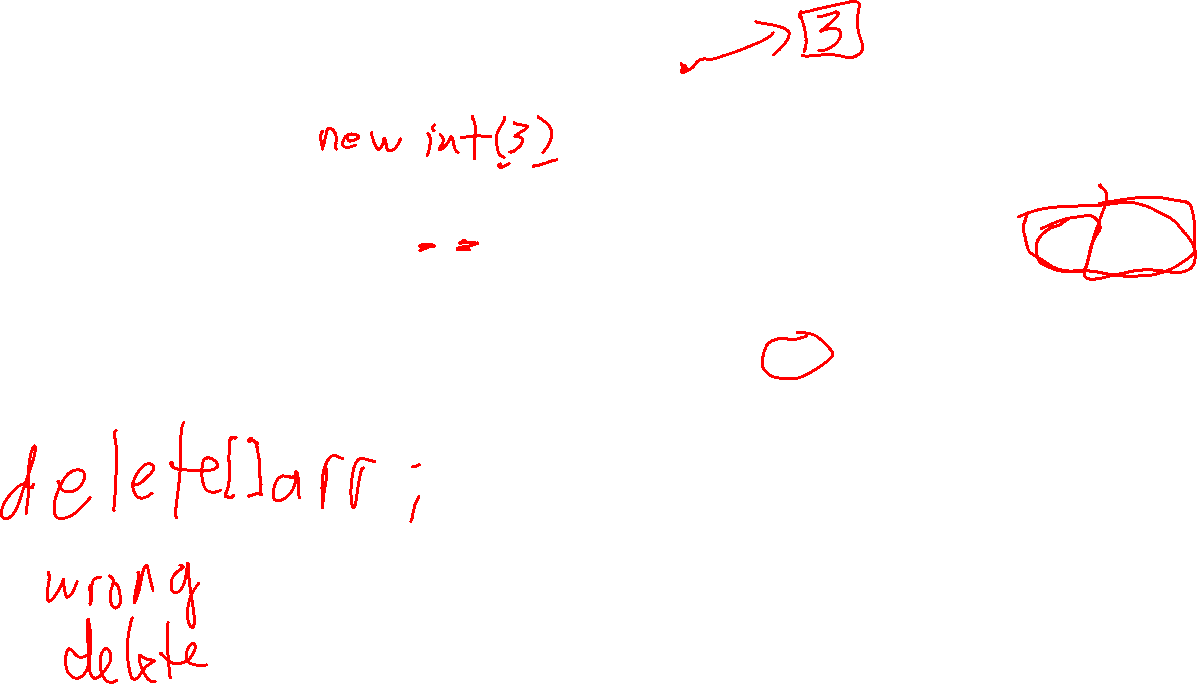 3
new int(3)
delete[]arr;
wrong
delete